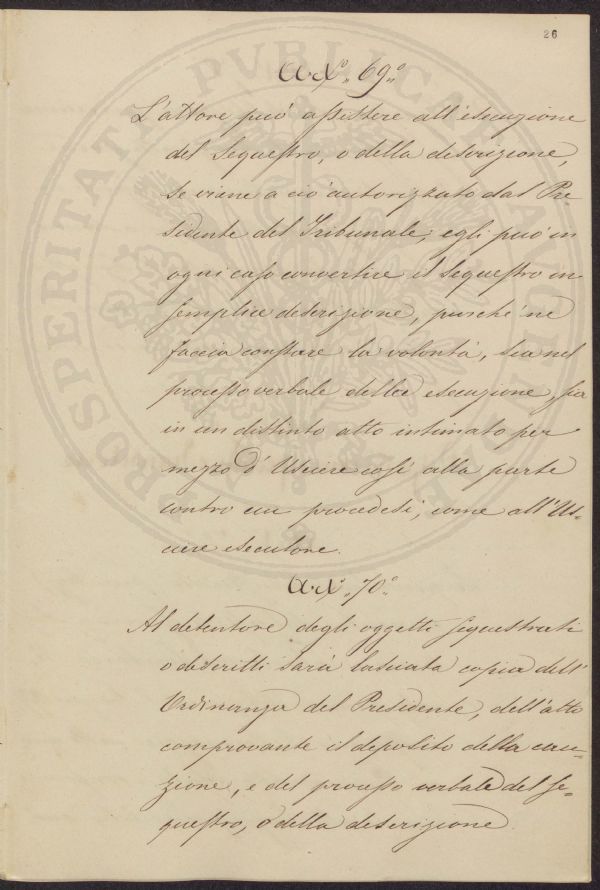 26
Art.° 69.°
L'attore può assistere all'esecuzione
del Sequestro, o della descrizione,
se viene a ciò autorizzato dal Pre
sidente del Tribunale, egli può in
ogni caso convertire il Sequestro in
semplice descrizione, purché ne
faccia constare la volontà, sia nel
processo verbale della esecuzione, sia
in un distinto atto intimato per
mezzo d'Usciere così alla parte
contro cui procedesi, come all'Us=
ciere esecutore.
Art.° 70.°
Al detentore degli oggetti sequestrati
o descritti sarà lasciata copia dell'
Ordinanza del Presidente, dell'atto
comprovante il deposito della cau=
zione, e del processo verbale del se=
questro, o della descrizione.
PROSPERITATI PVBLICAE